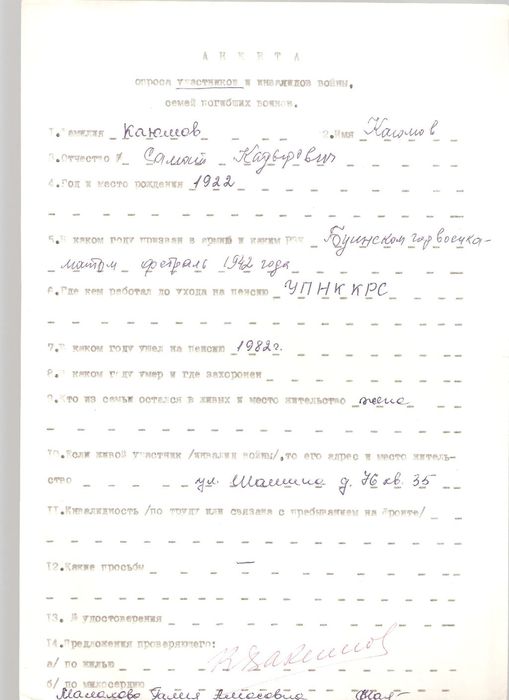 АНКЕТА
опроса участников и инвалидов войны,
семей погибших воинов.
1.Фамилия Каюмов 2.Имя Каюмов
3.Отчество Самат Кадырович
4.Год и место рождения 1922
5.В каком году призван в армию и каким РВК Буинском горвоенко-
матом февраль 1942 года
6.Где кем работал до ухода на пенсию УПНККРС
7.В каком году ушел на пенсию 1982г.
8.В каком году умер и где захоронен
9.Кто из семьи остался в живых и место жительство жена
10.Если живой участник /инвалид войны/,то его адрес и место житель-
ство ул. Шашина д. 76 кв. 35
11.Инвалидность /по труду или связана с пребыванием на фронте/
12.Какие просьбы —
13. № удостоверения
14.Предложения проверяющего:
а/ по жилью
б/ по милосердию